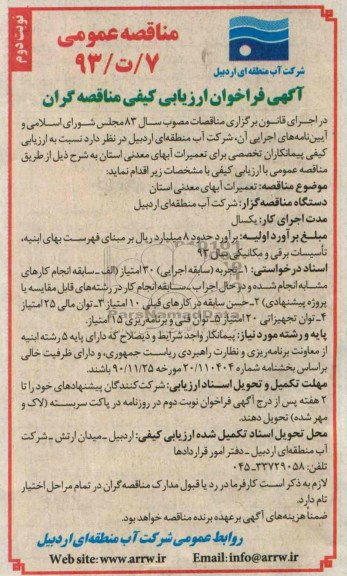 نوبت دوم
مناقصه عمومی
۷/ت/۹۳
شرکت آب منطقه ای اردبیل
آگهی فراخوان ارزیابی کیفی مناقصه گران
در اجرای قانون برگزاری مناقصات مصوب سال ۸۳ مجلس شورای اسلامی و
آیین‌نامه‌های اجرایی آن، شرکت آب منطقه‌ای اردبیل در نظر دارد نسبت به ارزیابی
کیفی پیمانکاران تخصصی برای تعمیرات آبهای معدنی استان به شرح ذیل از طریق
مناقصه عمومی با ارزیابی کیفی با مشخصات زیر اقدام نماید:
موضوع مناقصه: تعمیرات آبهای معدنی استان
دستگاه مناقصه‌گزار: شرکت آب منطقه‌ای اردبیل
مدت اجرای کار: یکسال
مبلغ برآورد اولیه: برآورد حدود ۸ میلیارد ریال بر مبنای فهرست بهای ابنیه،
تأسیسات برقی و مکانیکی سال ۹۳
اسناد درخواستی: ۱- تجربه (سابقه اجرایی) ۳۰ امتیاز (الف_سابقه انجام کارهای
مشابه انجام شده و در حال اجرا ب_سابقه انجام کار در رشته‌های قابل مقایسه با
پروژه پیشنهادی) ۲_حسن سابقه در کارهای قبلی ۱۰ امتیاز ۳_توان مالی ۲۵ امتیاز
۴_توان تجهیزاتی ۲۰ امتیاز ۵_توان فنی و برنامه‌ریزی ۱۵ امتیاز.
پایه و رشته مورد نیاز: پیمانکار واجد شرایط و ذیصلاح که دارای پایه ۵ رشته ابنیه
از معاونت برنامه‌ریزی و نظارت راهبردی ریاست جمهوری، و دارای ظرفیت خالی
براساس بخشنامه شماره ۲۰/۱۱۰۴۰۴ مورخه ۹۰/۱۱/۲۵ باشند.
مهلت تکمیل و تحویل اسناد ارزیابی: شرکت‌کنندگان پیشنهادهای خود را تا
۲ هفته پس از درج آگهی فراخوان نوبت دوم در روزنامه در پاکت سربسته (لاک و
مهر شده) تحویل دهند.
محل تحویل اسناد تکمیل شده ارزیابی کیفی: اردبیل _میدان ارتش _شرکت
آب منطقه‌ای اردبیل _دفتر امور قراردادها
تلفن: ۳۳۷۲۹۰۵۸-۰۴۵
لازم به ذکر است کارفرما در رد یا قبول مدارک مناقصه‌گران در تمام مراحل اختیار
تام دارد.
ضمناً هزینه‌های آگهی برعهده برنده مناقصه خواهد بود.
روابط عمومی شرکت آب منطقه‌ای اردبیل
Web site: www.arrw.ir Email: info@arrw.ir